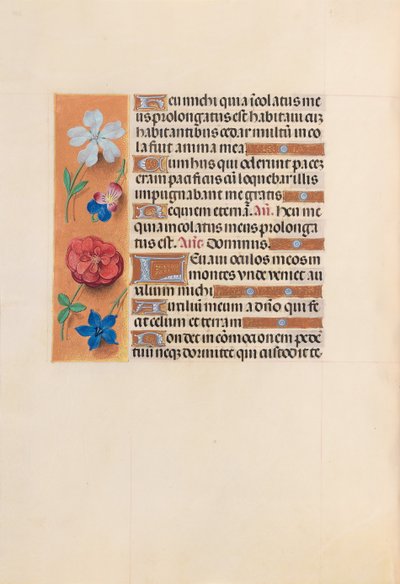 Heu michi quia īcolatus me
us prolongatus est habitaui cū
habitantibus cedar multū inco
la fuit anima mea
Cum his qui oderunt pacē
eram pacificus cū loquebar illis
impugnabant me gratis
Requiem eternā. Añ. Heu me
quia incolatus meus prolonga
tus est. Añe. Dominus.
Leuaui oculos meos in
montes vnde veniet au
xilium michi
Auxilium meum a dño qui fe
cit celum et terram
Non det in cōmocionem pedē
tuū neqz dormitet qui custodit te